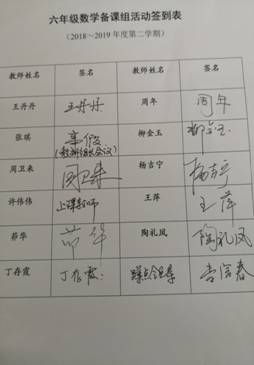 六年级数学备课组活动签到表
（2018～2019 年度第二学期）
教师姓名 签名 教师姓名 签名
王丹丹 王丹丹 周年 周年
张琪 事假 柳金玉 柳金玉
周卫来 周卫来 杨吉宁 杨吉宁
许伟伟 上课教师 王萍 王萍
茆华 茆华 陶礼凤 陶礼凤
丁存霞 丁存霞